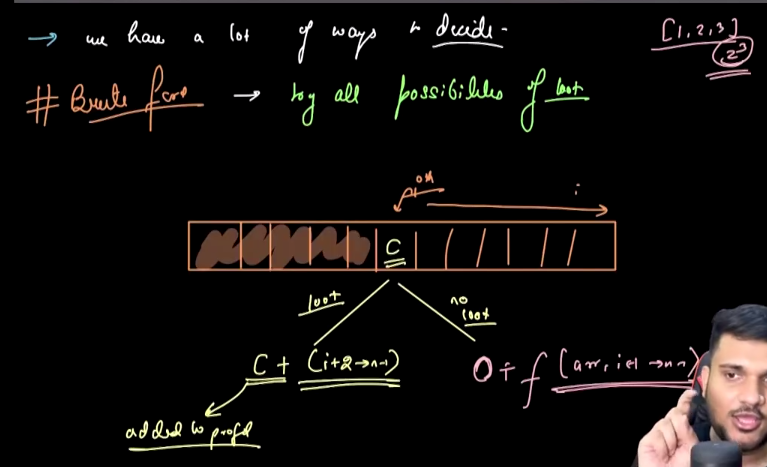 → we have a lot of ways to decide- [1,2,3]
2³
# Brute force → try all possibilities of loot
i
C
loot no loot
C + (i+2→n-1) 0 + f(arr, i+1 →n-1)
added to profit